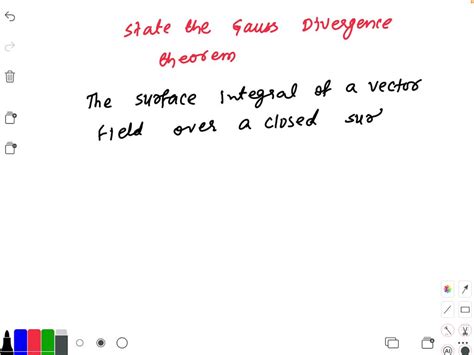 State the Gauss Divergence
theorem
The surface integral of a vector
Field over a closed sur